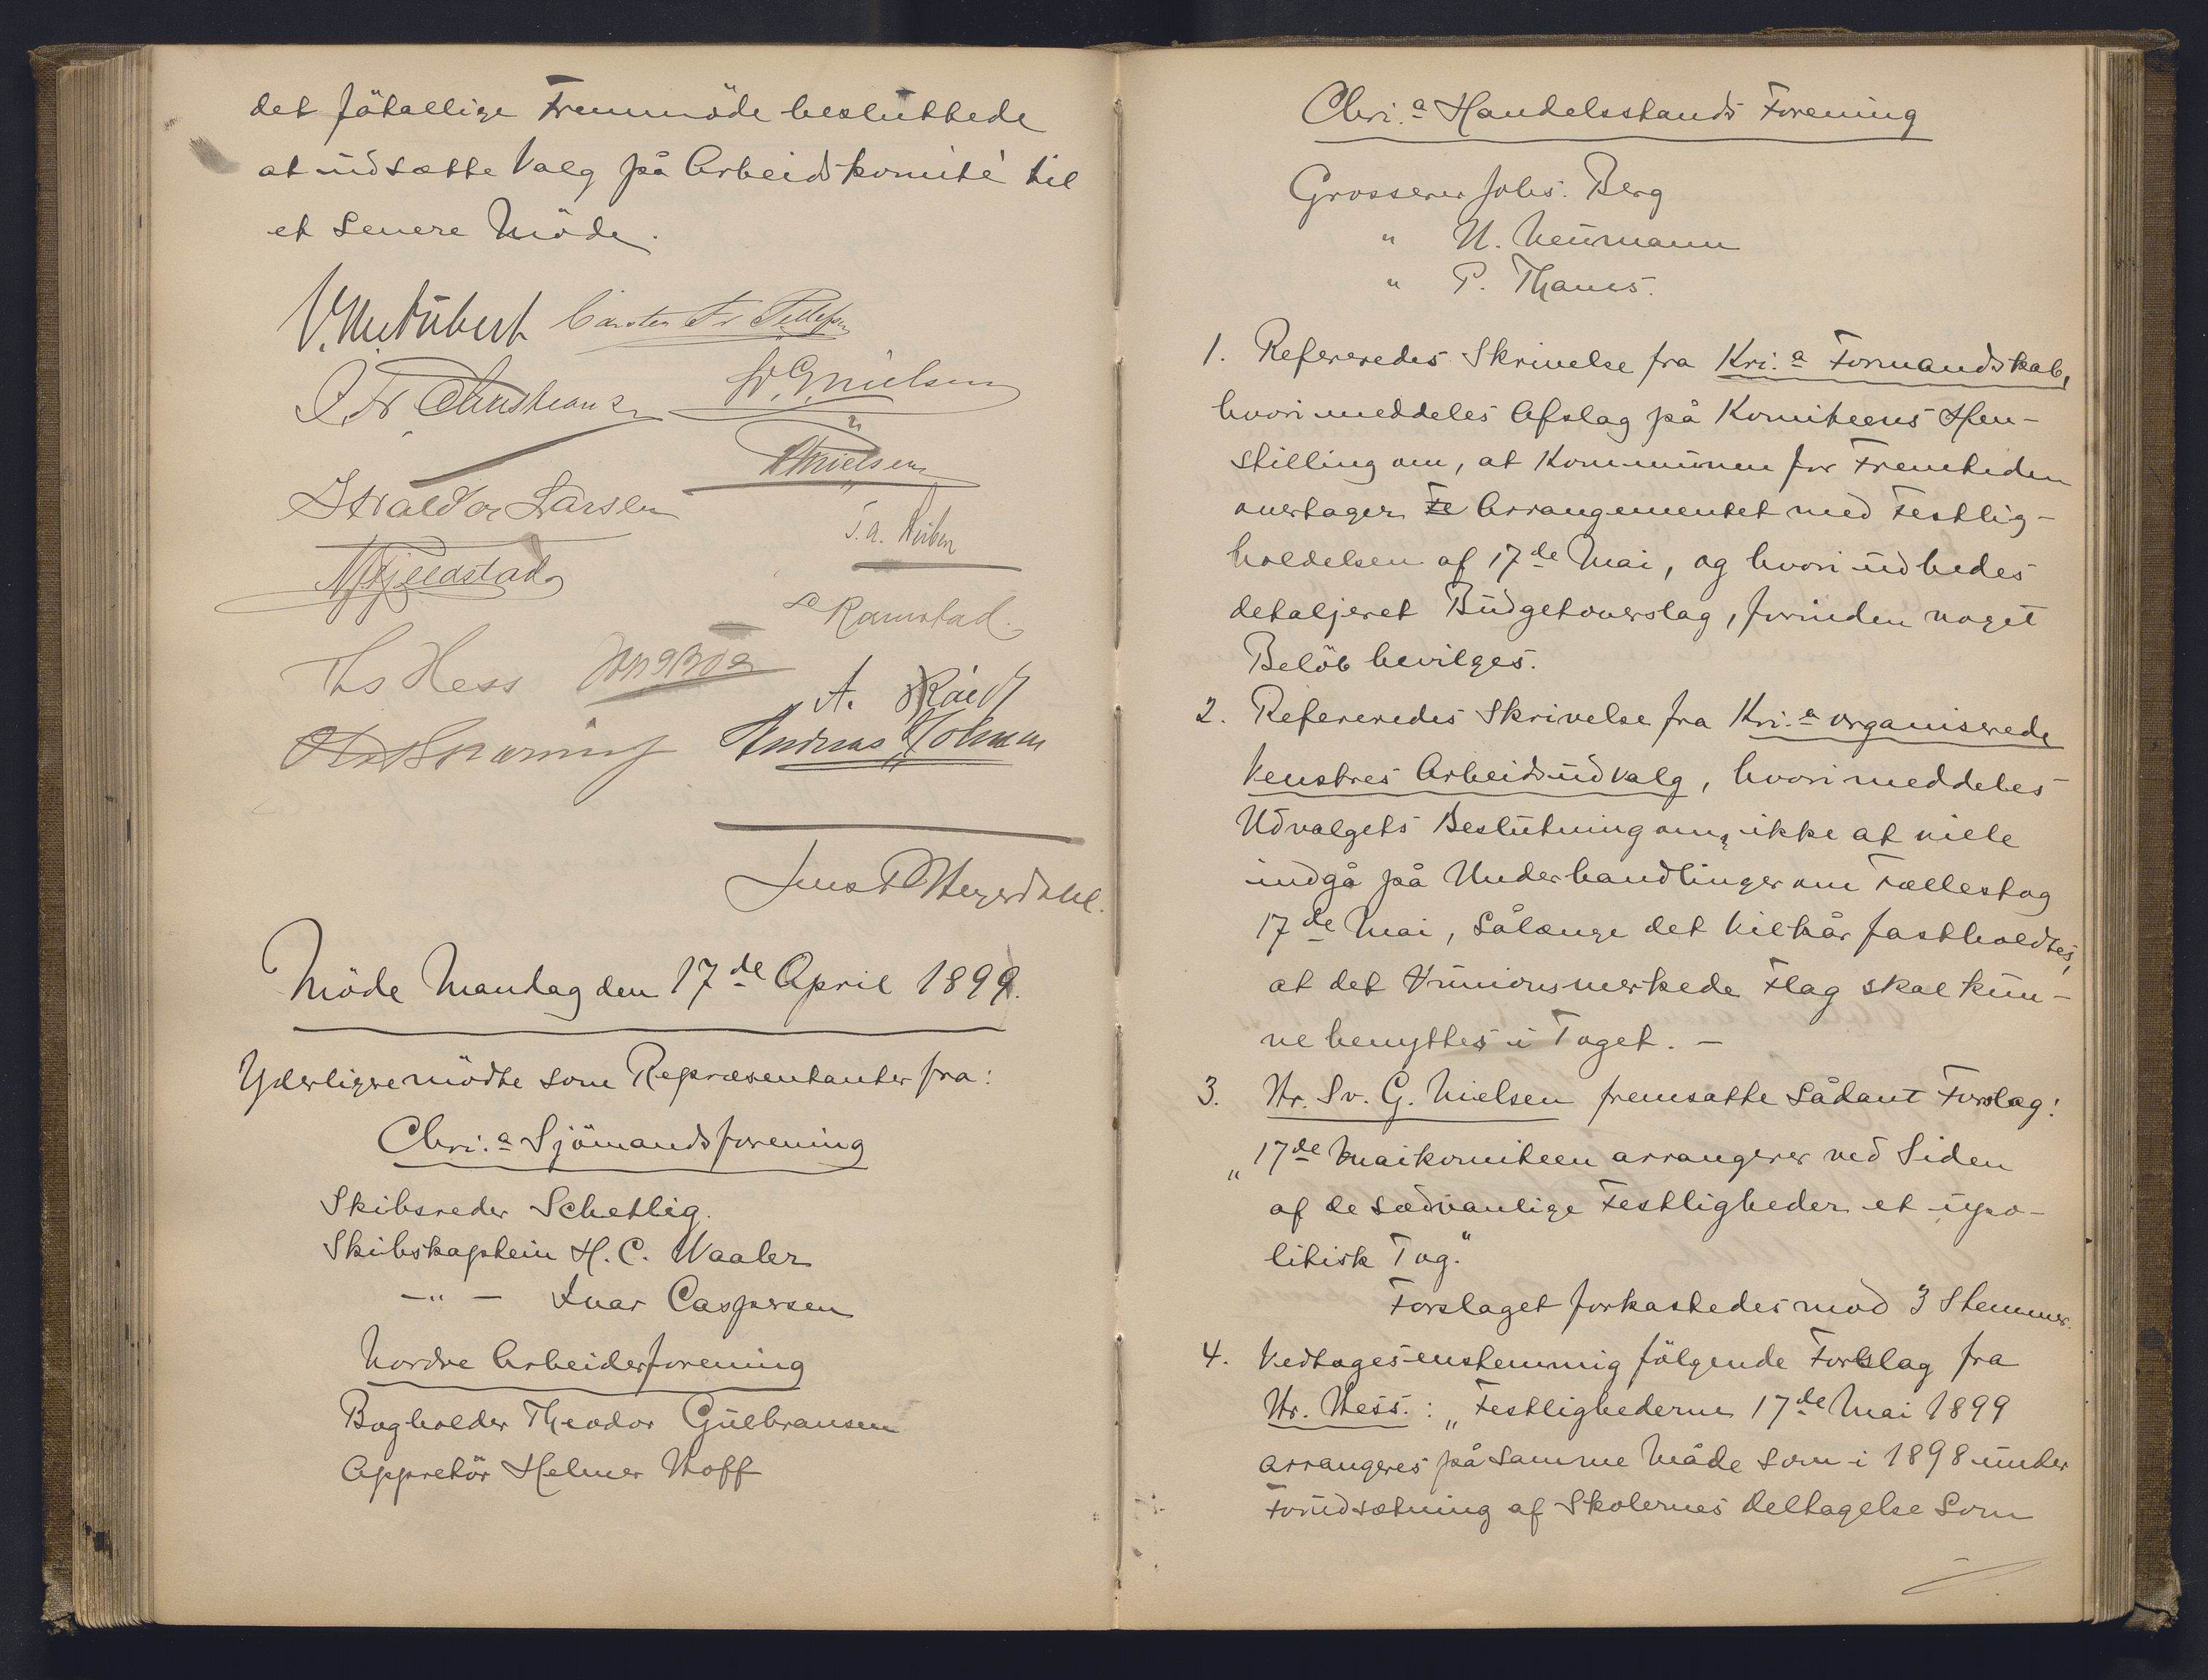 det fåtallige Fremmöde besluttede
at udsætte Valg på Arbeidskomité til
et senere Möde.
Carsten Fr. Tellefsen
J. Fr. Christiansen
Sv. G. Nielsen
Nielsen
Larsen
Ramstad.
Ths Hess
A.
Andreas Holmsen
Jens P. Heyerdahl.
Möde Mandag den 17de April 1899.
Yderligere mödte som Repræsentanter fra:
Chri.a Sjömandsforening
Skibsreder Schetlig.
Skibskaptein H. C. Waaler
—"— Ivar Caspersen
Nordre Arbeiderforening
Bogholder Theodor Gulbransen
Appretör Helmer Hoff
Chri.a Handelsstands Forening
Grosserer Johs. Berg
" N. Neumann
" P. Thams.
1. Refereredes Skrivelse fra Kri.a Formandskab,
hvori meddeles Afslag på Komiteens Hen-
stilling om, at Kommunen for Fremtiden
overtager Fe Arrangementet med Festlig-
holdelsen af 17de Mai, og hvori udbedes
detaljeret Budgetoverslag, forinden noget
Belöb bevilges.
2. Refereredes Skrivelse fra Kri.a organiserede
Venstres Arbeidsudvalg, hvori meddeles
Udvalgets Beslutning om, ikke at ville
indgå på Underhandlinger om Fællestog
17de Mai, sålænge det Vilkår fastholdtes,
at det Unionsmerkede Flag skal kun-
ne benyttes i Toget. —
3. Hr. Sv. G. Nielsen fremsatte sådant Forslag:
„17de Maikomiteen arrangerer ved Siden
af de sædvanlige Festligheder et upo-
litisk Tog."
Forslaget forkastedes mod 3 Stemmer.
4. Vedtoges enstemmig fölgende Forslag fra
Hr. Hess.: „Festlighederne 17de Mai 1899
arrangeres på samme Måde som i 1898 under
Forudsætning af Skolernes Deltagelse som